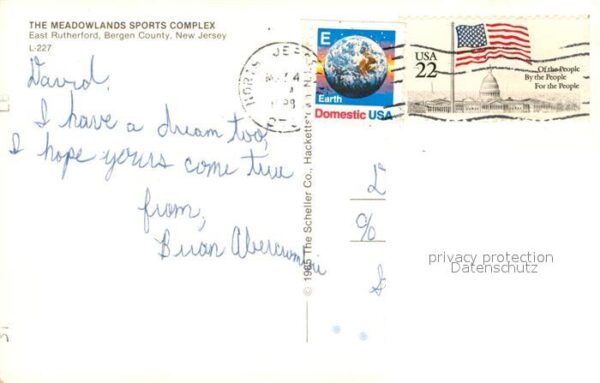 THE MEADOWLANDS SPORTS COMPLEX
East Rutherford, Bergen County, New Jersey
L-227
David,
I have a dream too,
I hope yours come true
from,
Brian Abercrombie
© 1985 The Scheller Co., Hackettstown
E
Earth
Domestic USA
USA
22
Of the People
By the People
For the People
NORTH JERSEY
%
privacy protection
Datenschutz